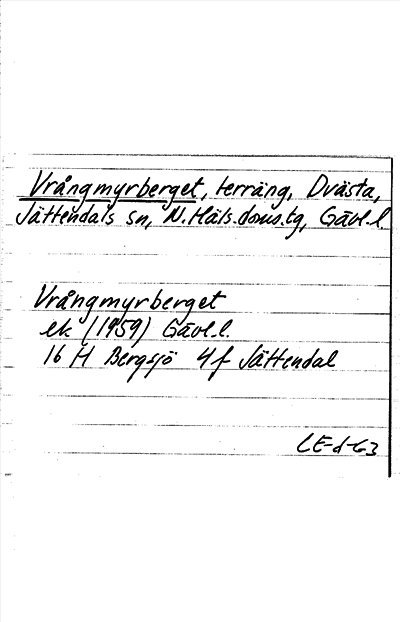 Vrångmyrberget, terräng, Dvästa,
Jättendals sn, N. Häls. doms.tg, Gävl.l.
Vrångmyrberget
ek (1959) Gävl.l.
16 H Bergsjö 4f Jättendal
LE-d-63